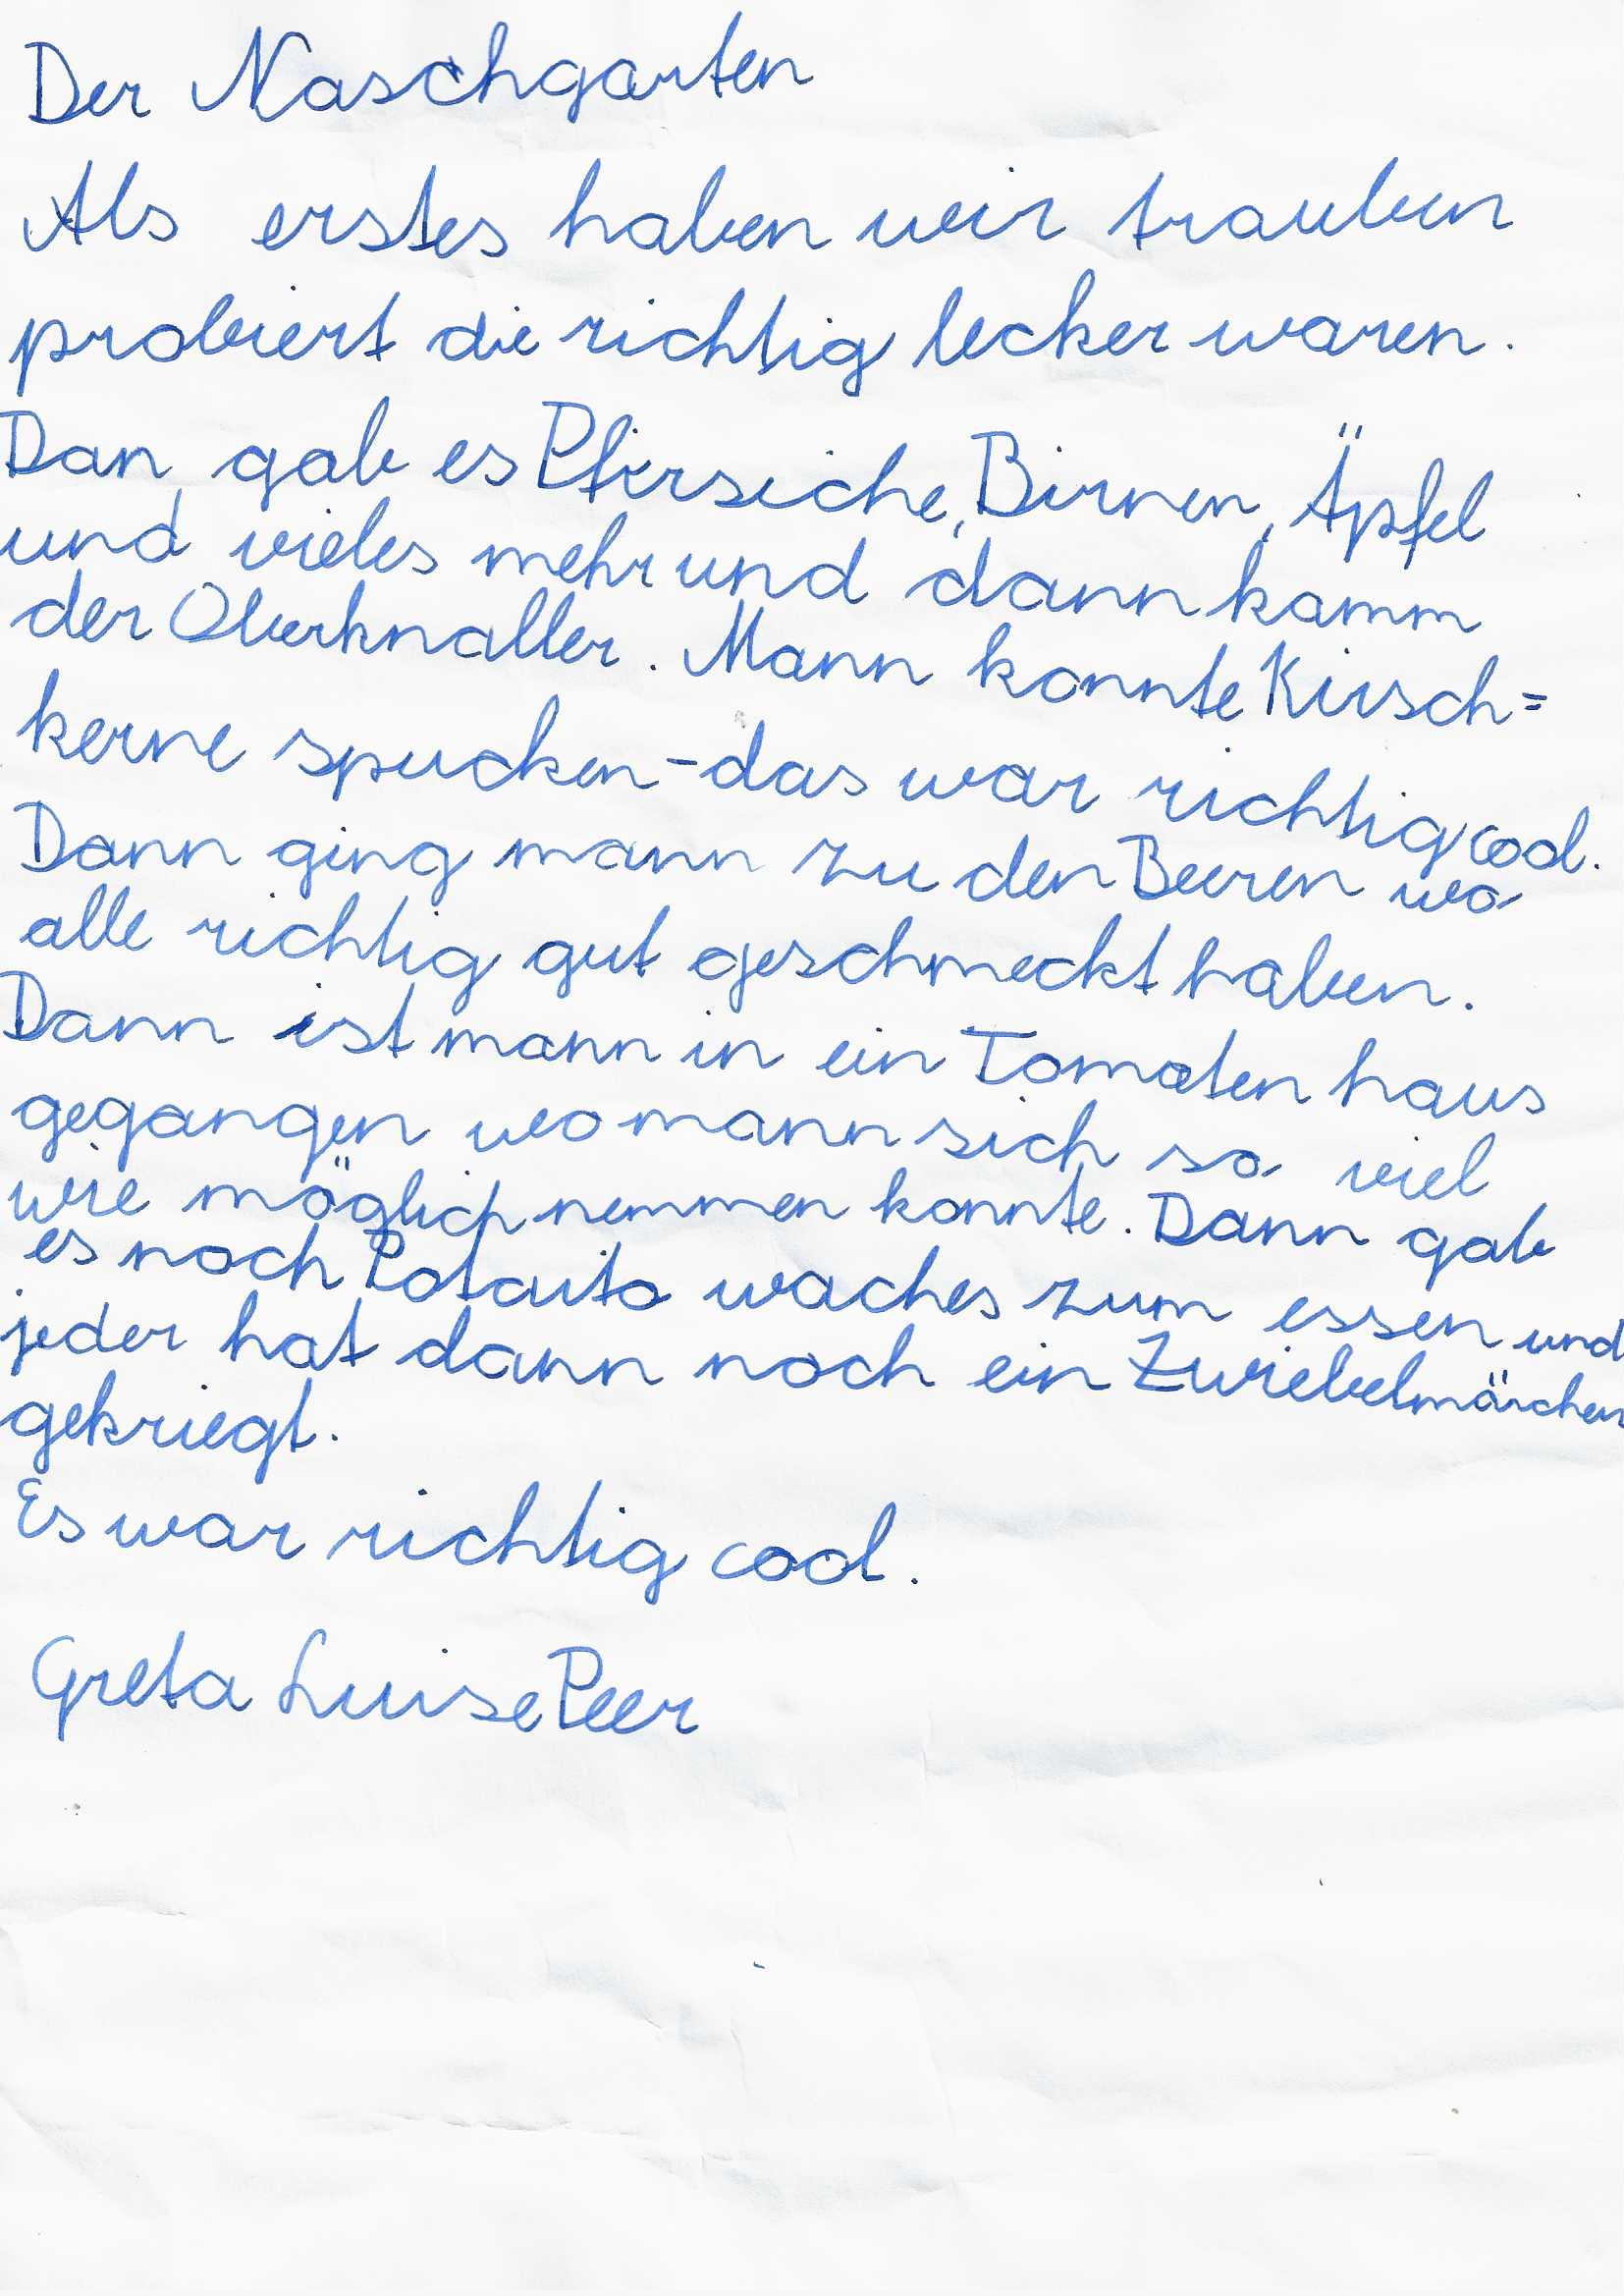 Der Naschgarten
Als erstes haben wir trauben
probiert die richtig lecker waren.
Dan gab es Pfirsiche, Birnen, Äpfel
und vieles mehr und dann kamm
der Oberknaller. Mann konnte Kirsch=
kerne spucken - das war richtig cool.
Dann ging mann zu den Beeren wo
alle richtig gut geschmeckt haben.
Dann ist mann in ein Tomaten haus
gegangen wo mann sich so viel
wie möglich nemmen konnte. Dann gab
es noch Potaito waches zum essen und
jeder hat dann noch ein Zwiebelmärchen
gekriegt.
Es war richtig cool.
Greta Luise Peer